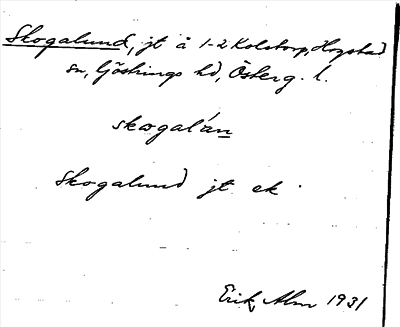 Skogalund, jt å 1-2 Kolstorp, Hogstad
sn, Göstrings hd, Österg. l.
skogalán
Skogalund jt ek.
Erik Alm 1931